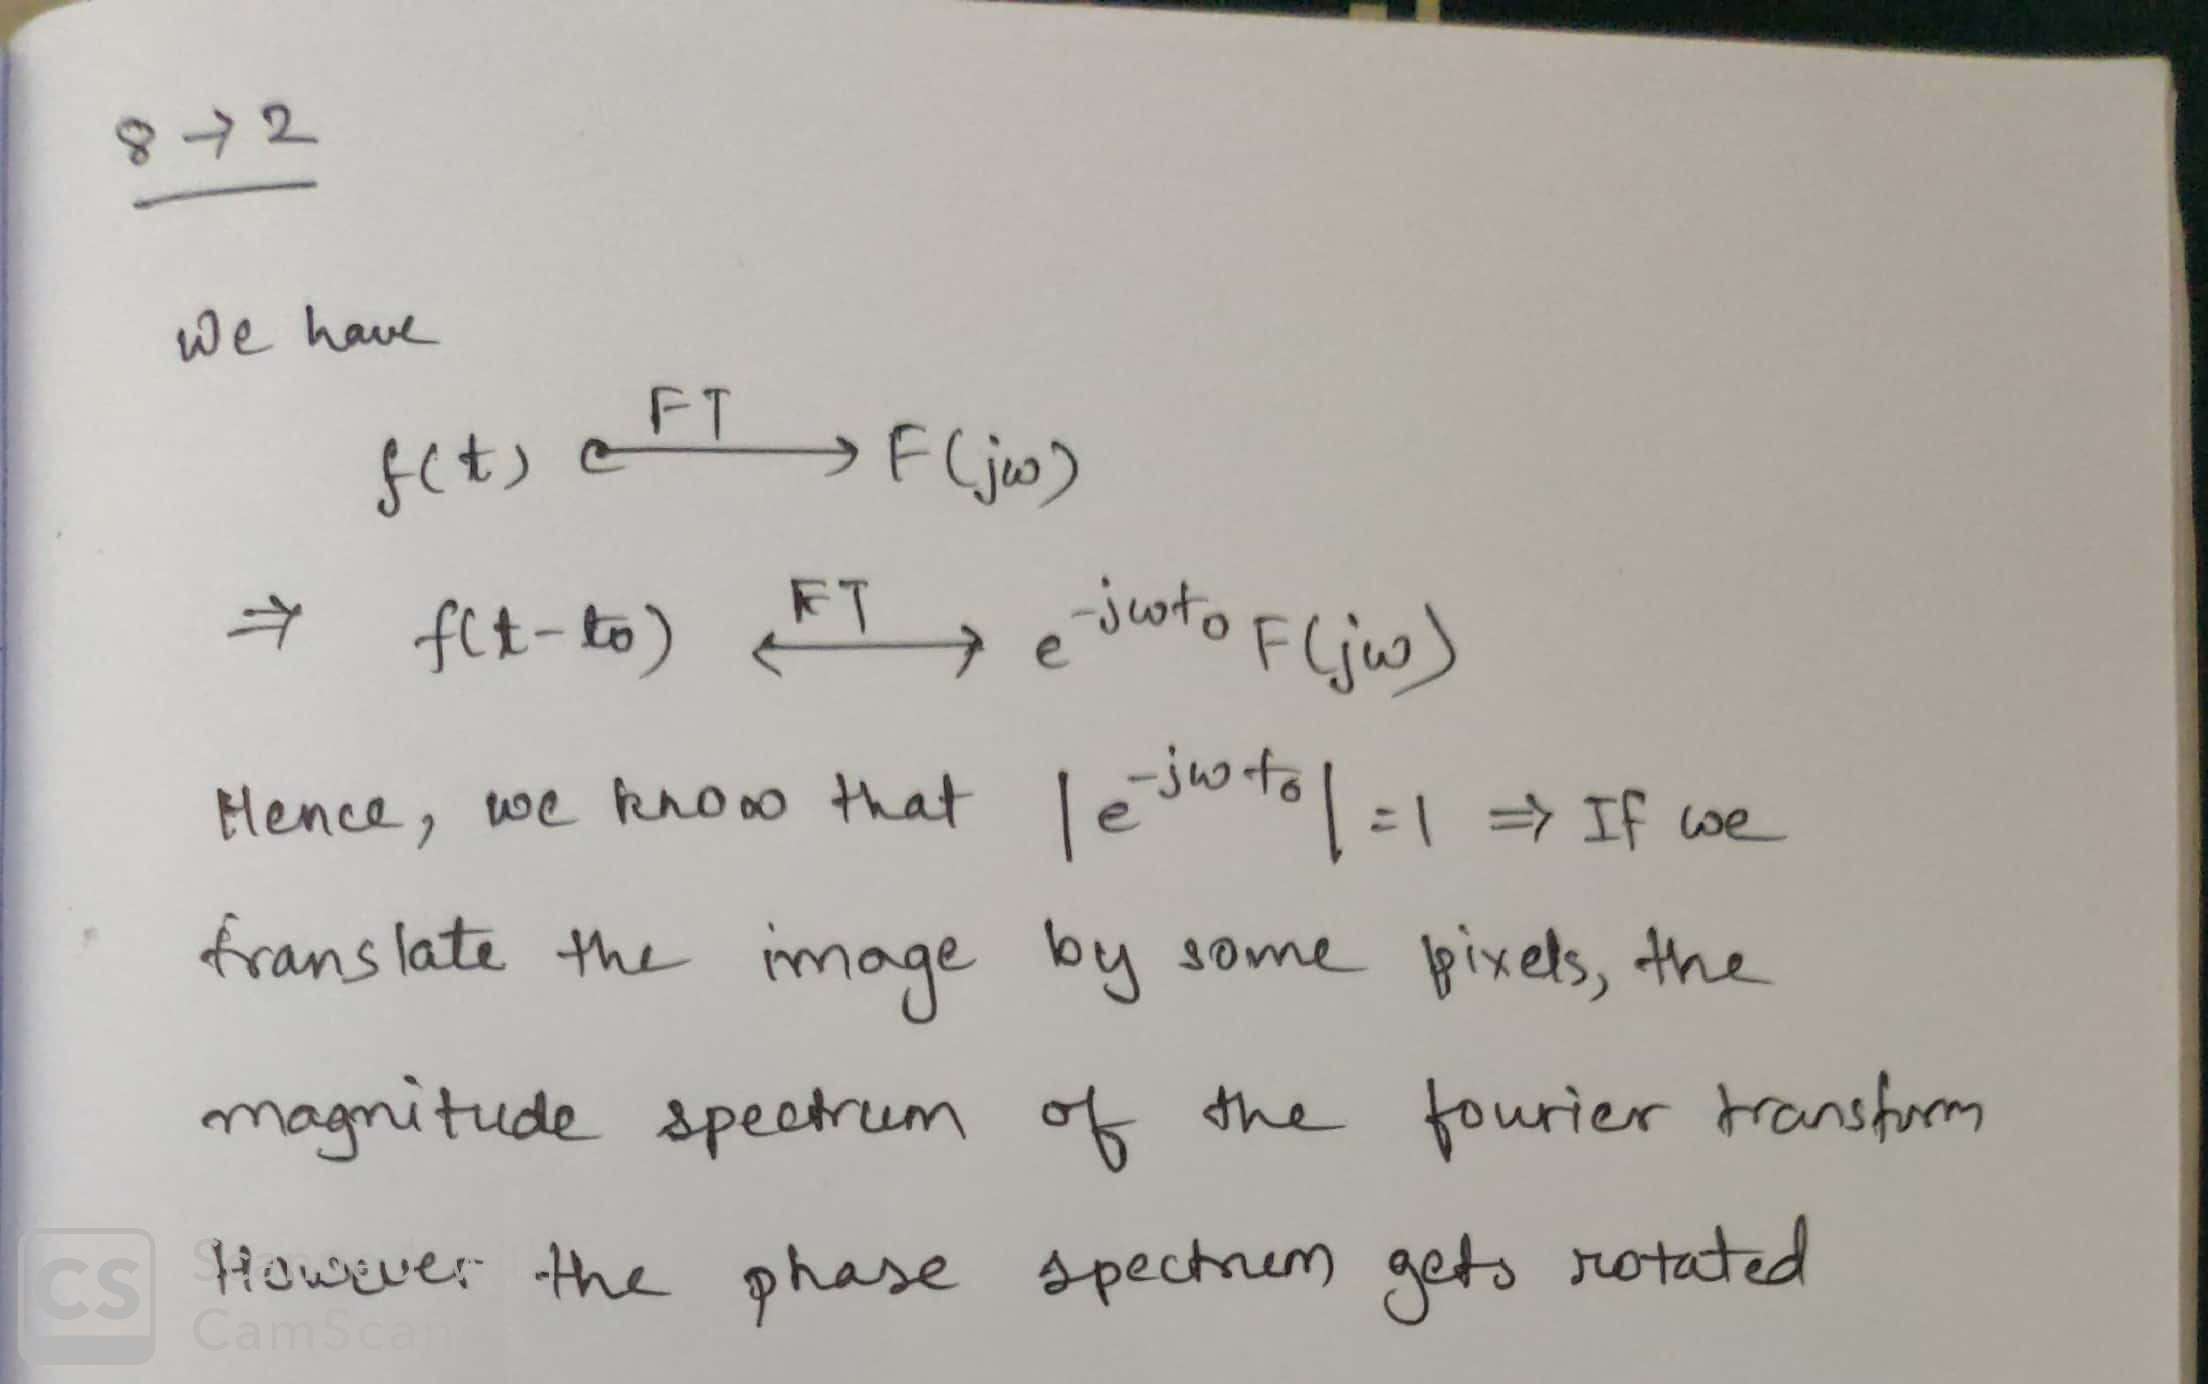 8 → 2
We have
f(t) ⟷ FT F(jω)
⇒ f(t-t₀) ⟷ FT e^{-jωt₀} F(jω)
Hence, we know that |e^{-jωt₀}| = 1 ⇒ If we
translate the image by some pixels, the
magnitude spectrum of the fourier transform
However the phase spectrum gets rotated
CS
CamScan